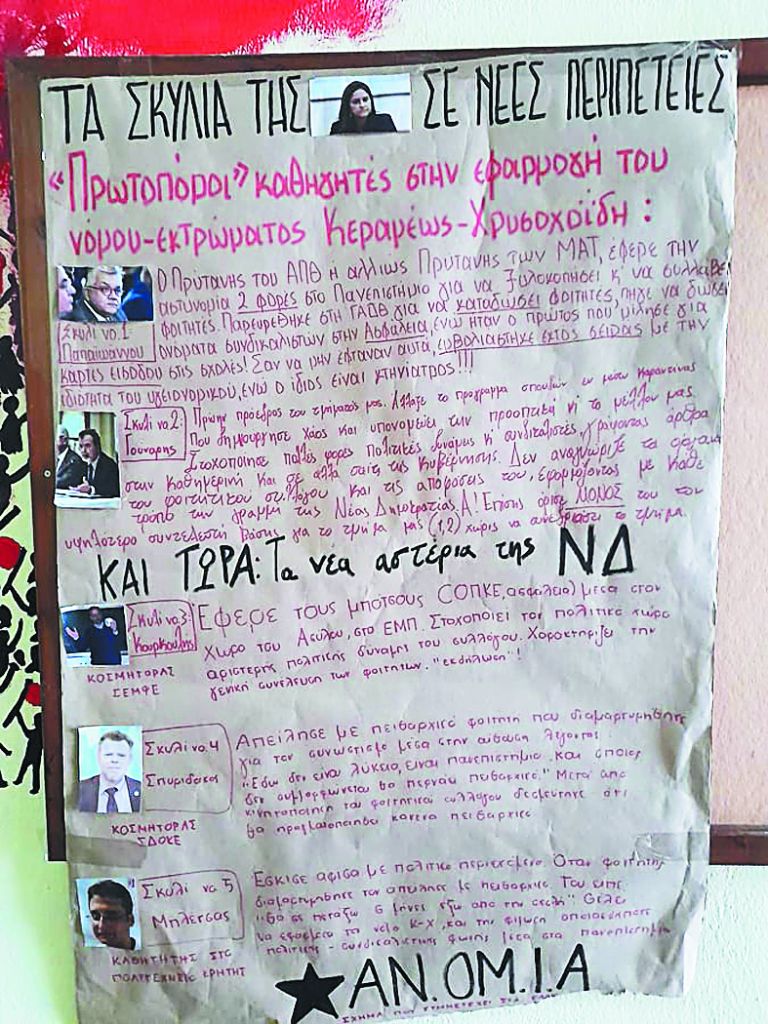 ΤΑ ΣΚΥΛΙΑ ΤΗΣ ΣΕ ΝΕΕΣ ΠΕΡΙΠΕΤΕΙΕΣ
"Πρωτοπόροι" καθηγητές στην εφαρμογή του
νόμου-εκτρώματος Κεραμέως-Χρυσοχοΐδη:
Ο Πρύτανης του ΑΠΘ ή αλλιώς Πρύτανης των ΜΑΤ, έφερε την
αστυνομία 2 φορές στο Πανεπιστήμιο για να ξυλοκοπήσει κ' να συλλάβει
φοιτητές. Παρευρέθηκε στη ΓΑΔΘ για να καταδώσει φοιτητές, πήγε να δώσει
Σκυλί νο.1
Παπαϊωάννου
ονόματα συνδικαλιστών στην Ασφάλεια, ενώ ήταν ο πρώτος που μίλησε για
κάρτες εισόδου στις σχολές! Σαν να μην έφταναν αυτά, εμβολιάστηκε εκτός σειράς με την
ιδιότητα του υγειονομικού, ενώ ο ίδιος είναι κτηνίατρος!!!
Σκυλί νο 2:
Γουναρης
Πρώην προεδρος του τμηματος μας. Αλλαξε το προγραμμα σπουδων εν μεσω καραντινας
που δημιουργησε χάος και υπονομευει την προοπτική κι το μελλον μας
Στοχοποίησε πολλές φορες πολιτικές δυνάμεις κι συνδικαλιστές, γραφοντας άρθρα
στην καθημερινή και σε αλλα σαιτς της κυβέρνησης. Δεν αναγνωριζε τα οργανα
του φοιτητικου συλλογου και τις αποφασεις του, εφαρμοζοντας με καθε
τροπο την γραμμη της Νέας Δημοκρατιας Α! Επισης ορισε ΜΟΝΟΣ του τον
υψηλοτερο συντελεστή βασης για το τμημα μας (1,2) χωρις να συνεδριασει το τμημα.
ΚΑΙ ΤΩΡΑ: Τα νεα αστέρια της ΝΔ
Σκυλι νο 3:
Κουρκουλης
ΚΟΣΜΗΤΟΡΑΣ
ΣΕΜΦΕ
Έφερε τους μπάτσους (ΟΠΚΕ, ασφαλεια) μεσα στον
χωρο του Ασυλου, στο ΕΜΠ. Στοχοποιει τον πολιτικο χωρο
αριστερης πολιτικης δυναμης του συλλογου. Χαρακτηριζει την
γενικη συνελευση των φοιτητων "εκδηλωση"!
Σκυλι νο 4
Σπυριδακος
ΚΟΣΜΗΤΟΡΑΣ
ΣΔΟΚΕ
Απείλησε με πειθαρχικό φοιτητή που διαμαρτυρήθηκε
για τον συνωστισμό μεσα στην αιθουσα λεγοντας:
"Εδω δεν ειναι λύκειο, ειναι πανεπιστημιο και οποιος
δεν συμμορφωνεται θα περναει πειθαρχικο." Μετα απο
κινητοποιηση του φοιτητικου συλλογου δεσμευτηκε ότι
θα πραγματοποιηθει κανενα πειθαρχικο
Σκυλι νο 5
Μπλετσας
ΚΑΘΗΓΗΤΗΣ ΣΤΟ
ΠΟΛΥΤΕΧΝΕΙΟ ΚΡΗΤΗΣ
Έσκισε αφισα με πολιτικο περιεχομενο. Οταν φοιτητης
διαμαρτυρηθηκε τον απειλησε με πειθαρχικο. Του ειπε
"Θα σε πεταξω 6 μηνες εξω απο την σχολη" Θελει
να εφαρμοσει το νομο Κ-Χ, και την φιμωση οποιασδηποτε
πολιτικης - συνδικαλιστικης φωνης μεσα στα πανεπιστημια
ΑΝ.ΟΜ.Ι.Α
ΣΧΗΜΑ ΠΟΥ ΣΥΜΜΕΤΕΧΕΙ ΣΤΑ